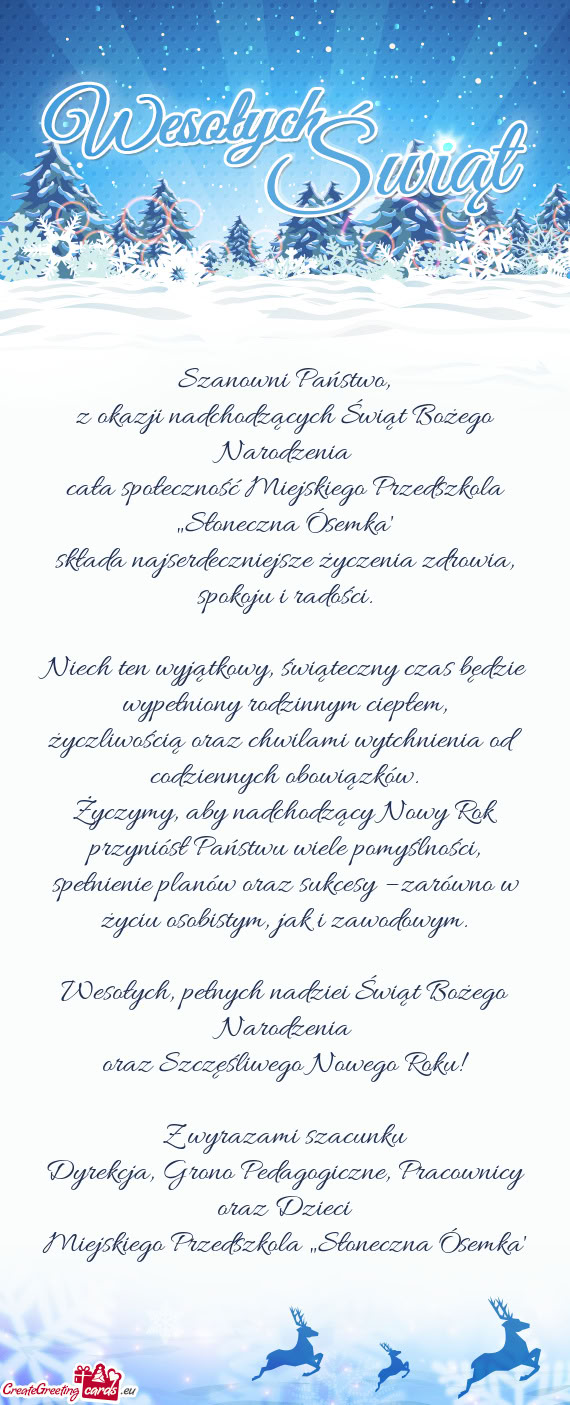 Wesołych
Świąt
Szanowni Państwo,
z okazji nadchodzących Świąt Bożego
Narodzenia
cała społeczność Miejskiego Przedszkola
„Słoneczna Ósemka'
składa najserdeczniejsze życzenia zdrowia,
spokoju i radości.
Niech ten wyjątkowy, świąteczny czas będzie
wypełniony rodzinnym ciepłem,
życzliwością oraz chwilami wytchnienia od
codziennych obowiązków.
Życzymy, aby nadchodzący Nowy Rok
przyniósł Państwu wiele pomyślności,
spełnienie planów oraz sukcesy – zarówno w
życiu osobistym, jak i zawodowym.
Wesołych, pełnych nadziei Świąt Bożego
Narodzenia
oraz Szczęśliwego Nowego Roku!
Z wyrazami szacunku
Dyrekcja, Grono Pedagogiczne, Pracownicy
oraz Dzieci
Miejskiego Przedszkola „Słoneczna Ósemka'
CreateGreeting cards .eu